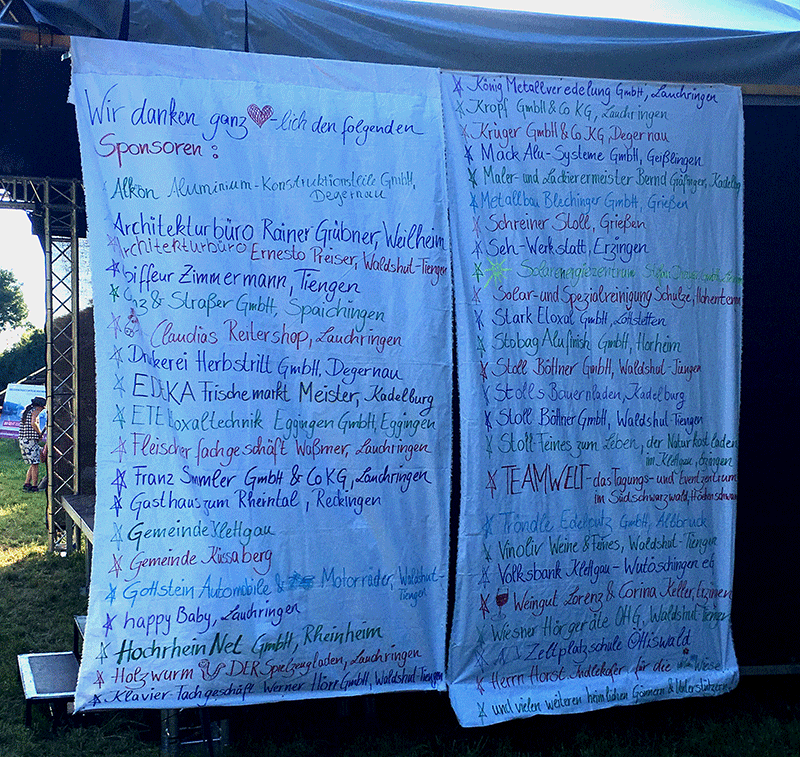 Wir danken ganz -lich den folgenden
Sponsoren :
Alkon Aluminium-Konstruktionsteile GmbH,
Degernau
Architekturbüro Rainer Grübner, Weilheim
Architekturbüro Ernesto Preiser, Waldshut-Tiengen
Zimmermann, Tiengen
& Straßer GmbH, Spaichingen
Claudias Reitershop, Lauchringen
Druckerei Herbstritt GmbH, Degernau
EDEKA Frischemarkt Meister, Kadelburg
ETE Eloxaltechnik Eggingen GmbH, Eggingen
Fleischerfachgeschäft Waßmer, Lauchringen
Franz Simmler GmbH & Co KG, Lauchringen
Gasthaus zum Rheintal, Reckingen
Gemeinde Klettgau
Gemeinde Küssaberg
Gottstein Automobile & Motorräder, Waldshut-
Tiengen
happy Baby, Lauchringen
HochrheinNet GmbH, Rheinheim
Holzwurm DER Spielzeugladen, Lauchringen
Klavier-fachgeschäft Werner Hörr GmbH, Waldshut-Tiengen
König Metallveredelung GmbH, Lauchringen
Kropf GmbH & Co KG, Lauchringen
Krüger GmbH & Co KG, Degernau
Mack Alu-Systeme GmbH, Geißlingen
Maler- und Lackierermeister Bernd Gräfinger, Kadelburg
Metallbau Blechinger GmbH, Grießen
Schreiner Stoll, Grießen
Seh-Werkstatt, Erzingen
Solarenergiezentrum
Solar- und Spezialreinigung Schulze, Hohentengen
Stark Eloxal GmbH, Lottstetten
Stobag Alufinish GmbH, Horheim
Stoll Böttner GmbH, Waldshut-Tiengen
Stolls Bauernladen, Kadelburg
Stoll Böttner GmbH, Waldshut-Tiengen
Stoll-Feines zum Leben, der Naturkostladen
im Klettgau, Erzingen
TEAMWELT-das Tagungs- und Eventzentrum
im Südschwarzwald, Höchenschwand
Tröndle Edelputz GmbH, Albbruck
Vinoliv Weine & Feines, Waldshut-Tiengen
Volksbank Klettgau-Wutöschingen eG
Weingut Lorenz & Corina Keller, Erzingen
Wiesner Hörgeräte OHG, Waldshut-Tiengen
Zeltplatzschule Ottiswald
Herrn Horst Indlekofer für die Wiese
und vielen weiteren heimlichen Gönnern & Unterstützern